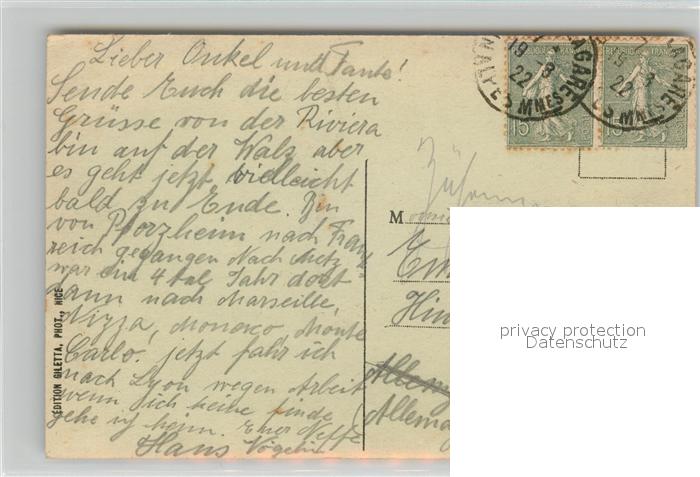 Lieber Onkel und Tante!
Sende Euch die besten
Grüsse von der Riviera
bin auf der Walz aber
es geht jetzt vielleicht
bald zu Ende. Bin
von Pforzheim nach Frank-
reich gegangen Nach Metz
war ein 4tel Jahr dort
dann nach Marseille,
Nizza, Monaco, Monte
Carlo. jetzt fahr ich
nach Lyon wegen Arbeit
wenn ich keine finde
gehe ich heim. Euer Neffe
Hans
EDITION GILETTA, PHOT., NICE
19 -8
22
REPUBLIQUE FRANÇAISE
15
GARE
M
Hin
Allem
Allema
privacy protection
Datenschutz